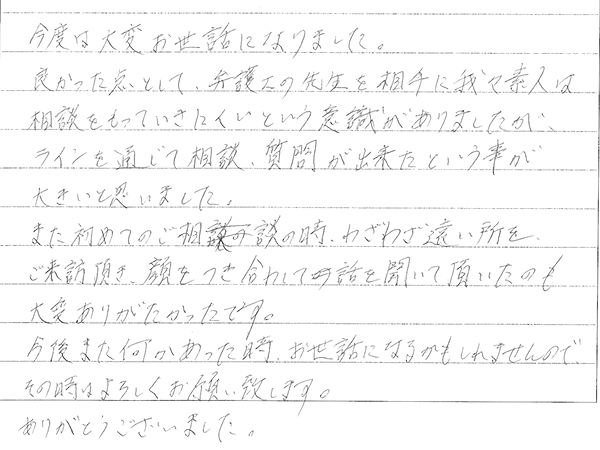 今度は大変お世話になりました。
良かった点として、弁護士の先生を相手に我々素人は
相談をもっていきにくいという意識がありましたが、
ラインを通じて相談、質問が出来たという事が
大きいと思いました。
また初めてのご相談の時、わざわざ遠い所を、
ご来訪頂き、顔をつき合わしてお話を聞いて頂いたのも
大変ありがたかったです。
今後また何かあった時、お世話になるかもしれませんので
その時はよろしくお願い致します。
ありがとうございました。